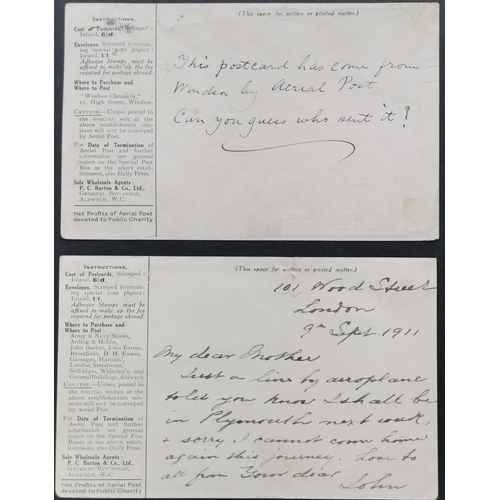 INSTRUCTIONS.
Cost of Postcards, Stamped:
Inland, 6½d.
Envelopes, Stamped (contain-
ing special note paper):
Inland, 1/1.
Adhesive Stamps must be
affixed to make up the fee
required for postage abroad.
Where to Purchase and
Where to Post:
"Windsor Chronicle,"
17, High Street, Windsor.
CAUTION.—Unless posted in
the SPECIAL BOX at the
above establishment mis-
sives will NOT be conveyed
by Aerial Post.
For Date of Termination of
Aerial Post and further
information see general
notice on the Special Post
Box at the above estab-
lishment, also Daily Press.
Sole Wholesale Agents:
P. C. Burton & Co., Ltd.,
GENERAL BUILDINGS,
ALDWYCH, W.C.
Net Profits of Aerial Post
devoted to Public Charity
(This space for written or printed matter.)
This postcard has come from
Windsor by Aerial Post
Can you guess who sent it?
INSTRUCTIONS.
Cost of Postcards, Stamped:
Inland, 6½d.
Envelopes, Stamped (contain-
ing special note paper):
Inland, 1/1.
Adhesive Stamps must be
affixed to make up the fee
required for postage abroad.
Where to Purchase and
Where to Post:
Army & Navy Stores,
Arding & Hobbs,
John Barker, John Barnes,
Benetfinks, D. H. Evans,
Gamages, Harrods',
London Aerodrome,
Selfridges, Whiteley's, and
General Buildings, Aldwych
CAUTION.—Unless posted in
the SPECIAL BOXES at the above
establishments missives will
NOT be conveyed by Aerial
Post.
For Date of Termination of
Aerial Post and further
information see general
notice on the Special Post
Boxes at the above establish-
ments, also Daily Press.
Sole Wholesale Agents:
P. C. Burton & Co., Ltd.,
GENERAL BUILDINGS,
ALDWYCH, W.C.
Net Profits of Aerial Post
devoted to Public Charity
(This space for written or printed matter.)
101 Wood Street
London
9th Sept 1911
My dear Mother
Just a line by aeroplane
to let you know I shall be
in Plymouth next week,
& sorry I cannot come home
again this journey. Love to
all from Your dear
John